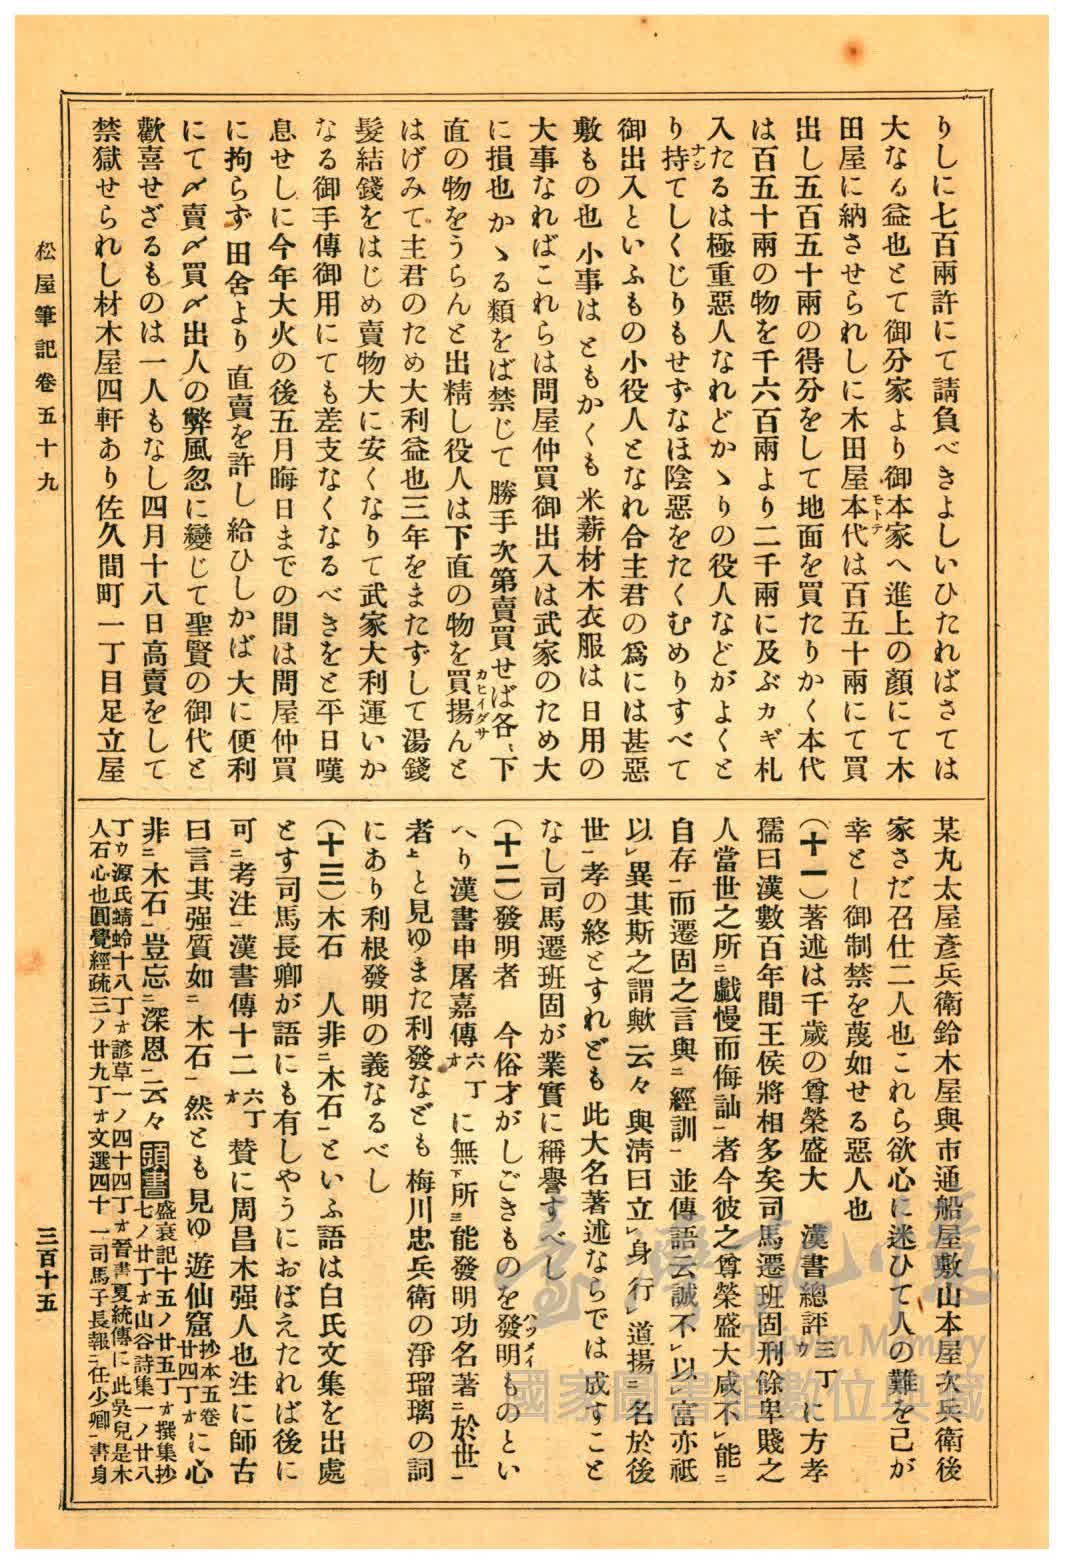 りしに七百兩許にて請負べきよしいひたればさては
大なる益也とて御分家より御本家へ進上の顏にて木
田屋に納させられしに木田屋本代モトテは百五十兩にて買
出し五百五十兩の得分をして地面を買たりかく本代
は百五十兩の物を千六百兩より二千兩に及ぶカギ札
入たるは極重惡人なれどかゝりの役人などがよくと
り持ナシてしくじりもせずなほ陰惡をたくむめりすべて
御出入といふもの小役人となれ合主君の爲には甚惡
敷もの也小事はともかくも米薪材木衣服は日用の
大事なればこれらは問屋仲買御出入は武家のため大
に損也かゝる類をば禁じて勝手次第賣買せば各〻下
直の物をうらんと出精し役人は下直の物を買揚カヒイグサんと
はげみて主君のため大利益也三年をまたずして湯錢
髮結錢をはじめ賣物大に安くなりて武家大利運いか
なる御手傳御用にても差支なくなるべきをと平日嘆
息せしに今年大火の後五月晦日までの間は問屋仲買
に拘らず田舍より直賣を許し給ひしかば大に便利
にて〆賣〆買〆出人の弊風忽に變じて聖賢の御代と
歡喜せざるものは一人もなし四月十八日高賣をして
禁獄せられし材木屋四軒あり佐久間町一丁目足立屋
某丸太屋彥兵衞鈴木屋與市通船屋敷山本屋次兵衞後
家さだ召仕二人也これら欲心に迷ひて人の難を己が
幸とし御制禁を蔑如せる惡人也
(十一)著述は千歲の尊榮盛大 漢書總評三丁ウに方孝
孺曰漢數百年間王侯將相多矣司馬遷班固刑餘卑賤之
人當世之所ニ戲慢而侮訕一者今彼之尊榮盛大咸不レ能ニ
自存一而遷固之言與ニ經訓一並傳語云誠不レ以レ富亦祇
以レ異其斯之謂歟云々與淸曰立レ身行レ道揚ニ名於後
世一孝の終とすれども此大名著述ならでは成すこと
なし司馬遷班固が業實に稱譽すべし
(十二)發明者 今俗才がしごきものを發明ハツメイものとい
へり漢書申屠嘉傳六丁オに無下所ニ能發明功名著ニ於世一
者上と見ゆまた利發なども梅川忠兵衞の淨瑠璃の詞
にあり利根發明の義なるべし
(十三)木石 人非ニ木石一といふ語は白氏文集を出處
とす司馬長卿が語にも有しやうにおぼえたれば後に
可ニ考注一漢書傳十二六丁オ贊に周昌木强人也注に師古
曰言其强質如ニ木石一然とも見ゆ遊仙窟抄本五卷廿四丁オに心
非ニ木石一豈忘ニ深恩一云々頭書盛衰記十五ノ廿五丁オ撰集抄
七ノ廿丁オ山谷詩集一ノ廿八
丁ウ源氏蜻蛉十八丁オ諺草一ノ四十四丁オ晉書夏統傳に此吳兒是木
人石心也圓覺經疏三ノ廿九丁オ文選四十一司馬子長報ニ任少卿一書身
松屋筆記卷五十九
三百十五
臺灣記憶
Taiwan Memory
國家圖書館數位典藏